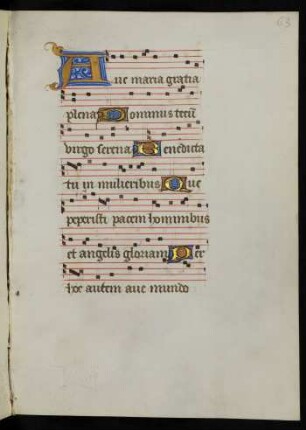 63
Aue maria gratia
plena Dominus tecū
virgo serena Benedicta
tu in mulieribus Que
peperisti pacem hominibus
et angelis gloriam Per
hoc autem aue mundo